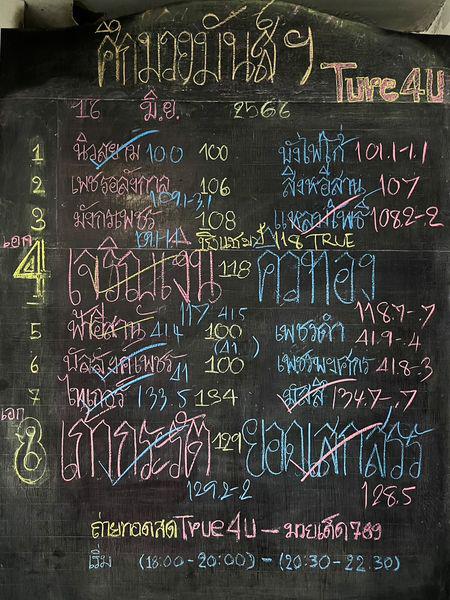 ศึกมวยมันส์ ฯ
Ture 4U
16 มิ.ย. 2566
1 นิวสยาม 100 100 บังไฟโก้ 101.1-1.1
2 เพชรอลังกาล 106 สิงห์อีสาน 107
109.1-3.1
3 มังกรเพชร 108 แหลมโพธิ์ 108.2-2
เอก 118 TRUE
4 เจริญเงิน 118 ควทอง
117 415 118.7-.7
5 ฟ้าอีสาน 414 100 เพชรดำ 419-4
6 100 เพชรพยศกร 418-3
41 (41.)
7 ไทเกอร์ 133.5 134 มันสี 134.7-.7
เอก
8 เก้ากะรัต 129 ยอดเสกสรร
129.2-2 128.5
ถ่ายทอดสด True 4U - มวยเด็ด 789
เริ่ม (18:00-20:00) - (20:30-22.30)